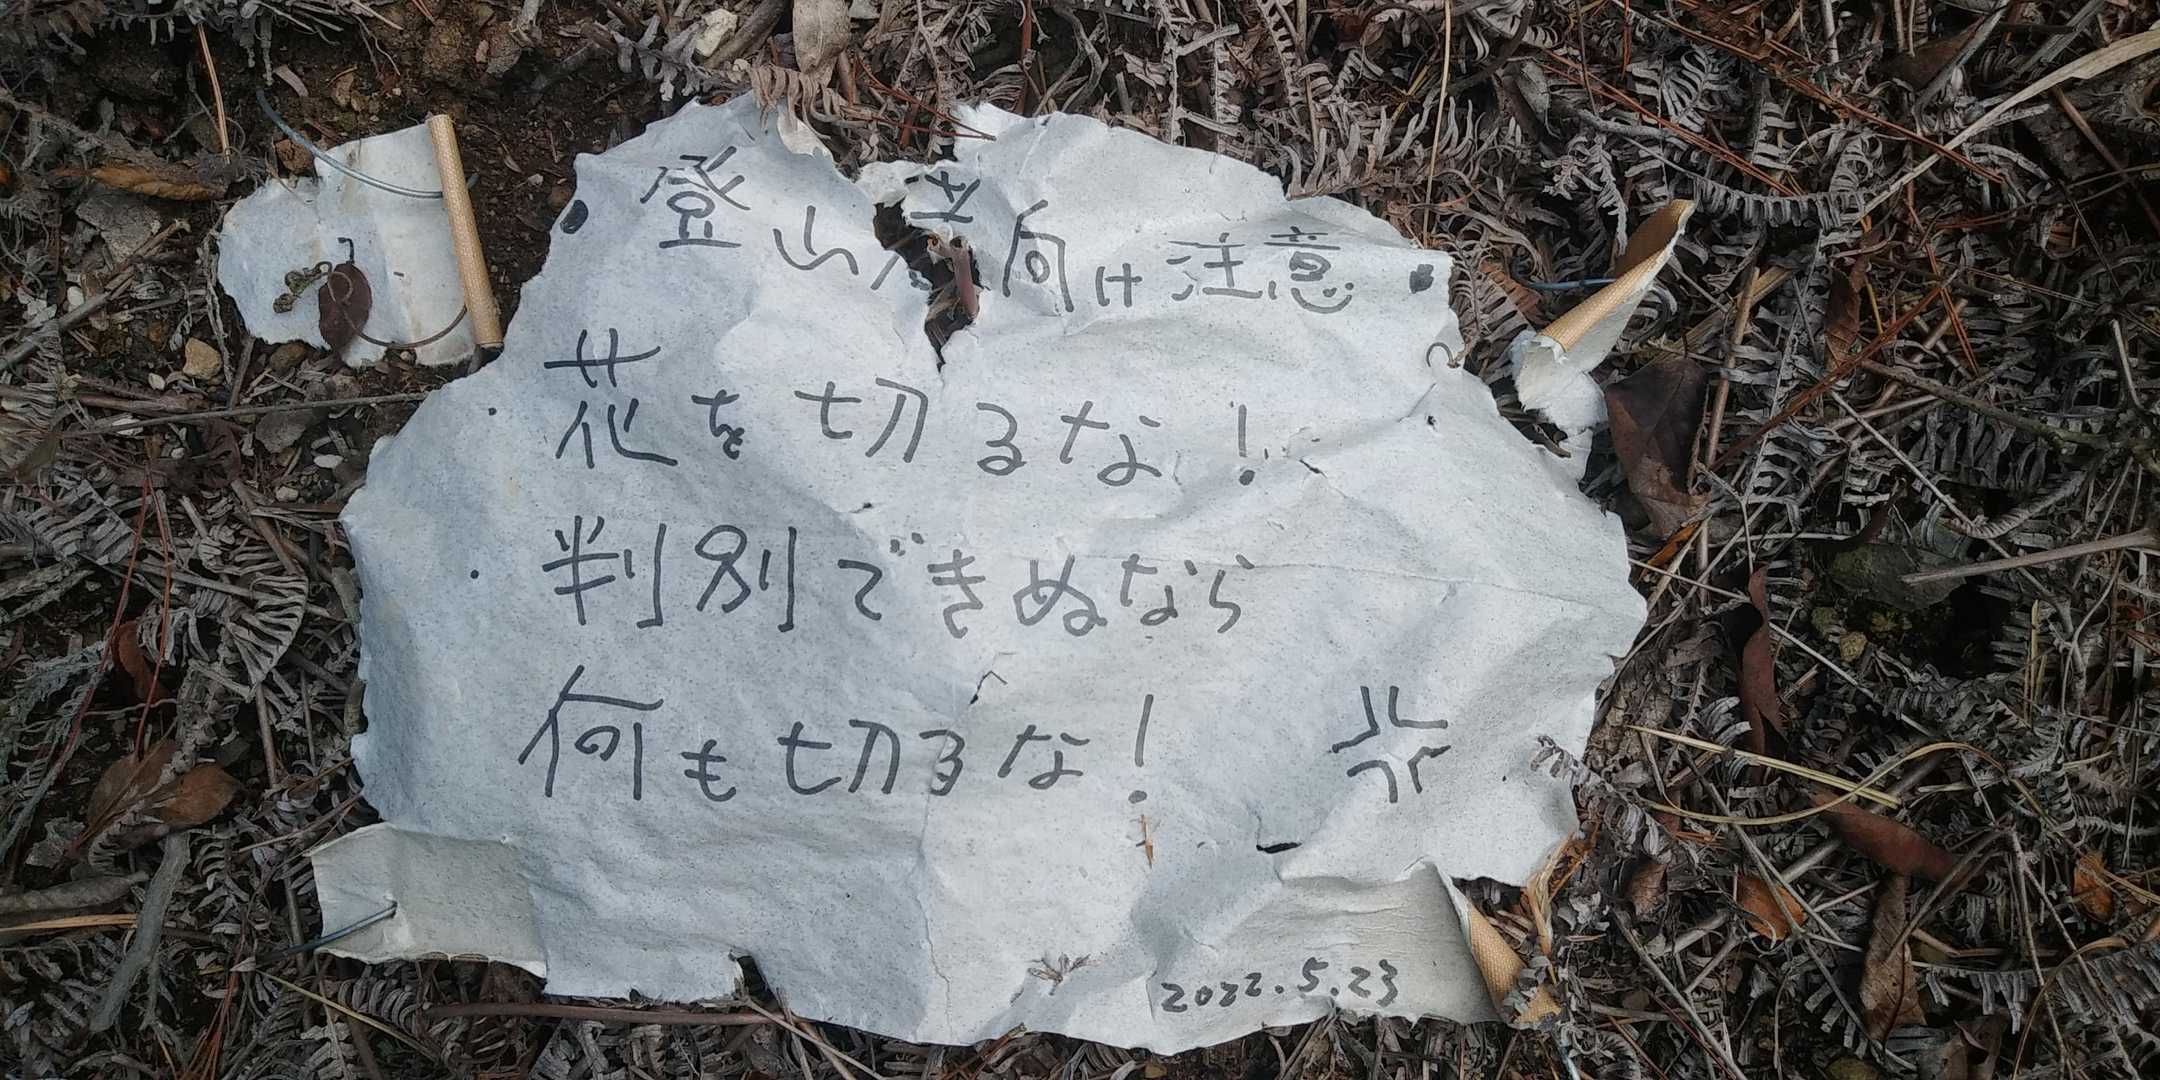 登山者向け注意
花を切るな!
判別できぬなら
何も切るな!
2022.5.23